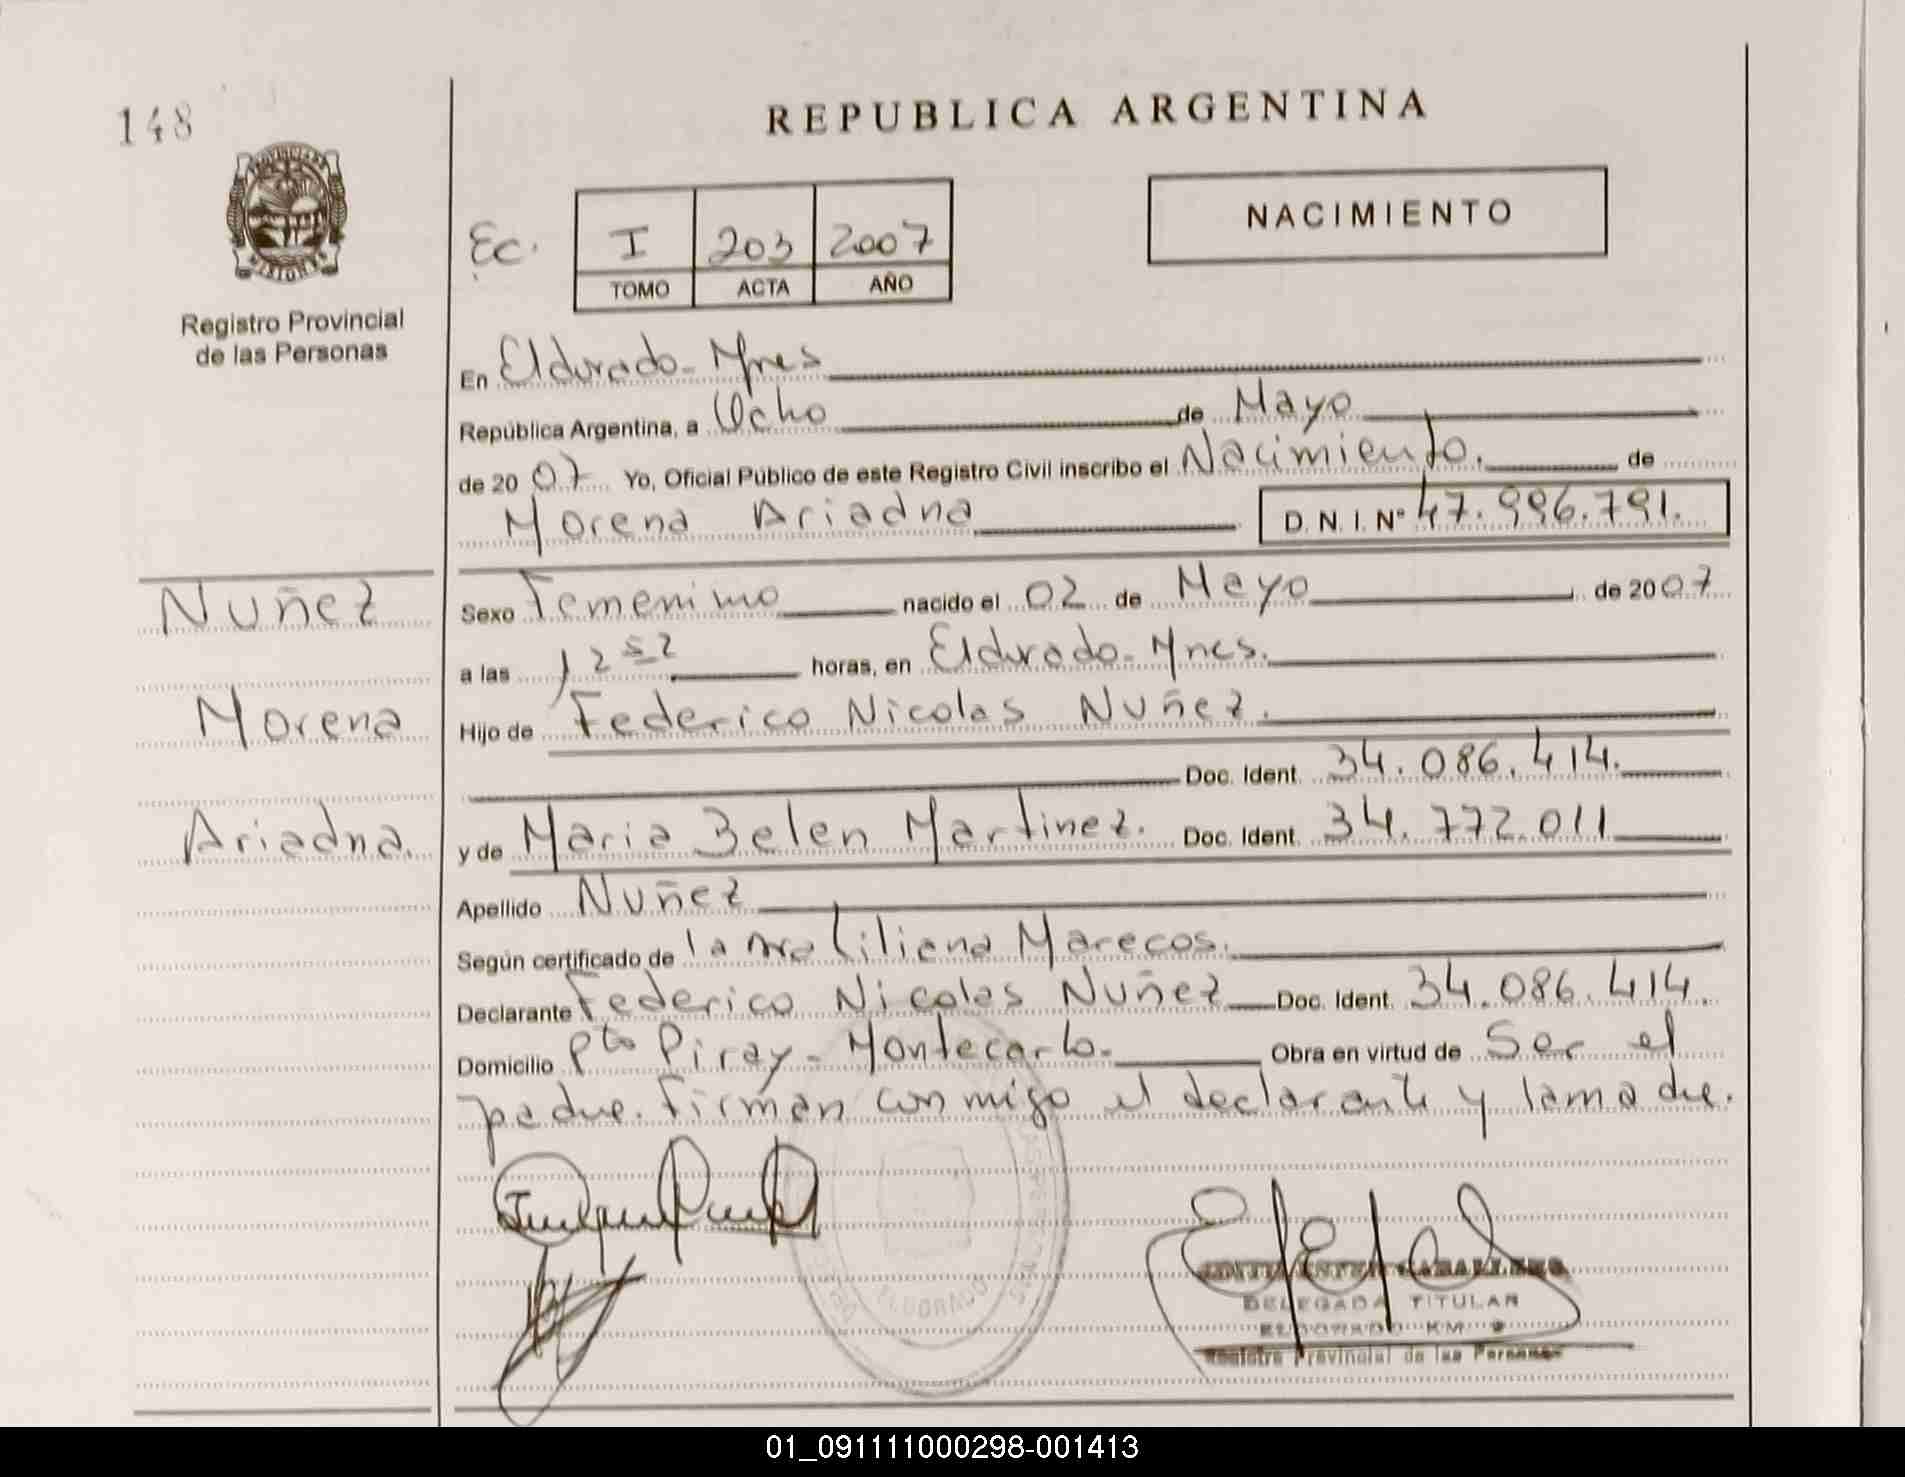 148
REPUBLICA ARGENTINA
PROVINCIA DE
MISIONES
Registro Provincial
de las Personas
Ec.
I 203 2007
TOMO ACTA AÑO
NACIMIENTO
En Eldorado - Mnes
República Argentina, a Ocho de Mayo
de 2007 Yo, Oficial Público de este Registro Civil inscribo el Nacimiento. de
Morena Ariadna D. N. I. N° 47.996.791.
Nuñez
Morena
Ariadna.
Sexo Femenino nacido el 02 de Mayo de 2007
a las 12 52 horas, en Eldorado - Mnes.
Hijo de Federico Nicolas Nuñez.
Doc. Ident. 34.086.414.
y de Maria Belen Martinez. Doc. Ident. 34.772.011
Apellido Nuñez
Según certificado de la Liliana Marecos.
Declarante Federico Nicolas Nuñez Doc. Ident. 34.086.414.
Domicilio Pto Piray - Montecarlo. Obra en virtud de Ser el
padre. Firman conmigo el declarante y la madre.
ELDORADO
CABALLERO
DELEGADA TITULAR
ELDORADO KM 9
Registro Provincial de las Personas
01_091111000298-001413